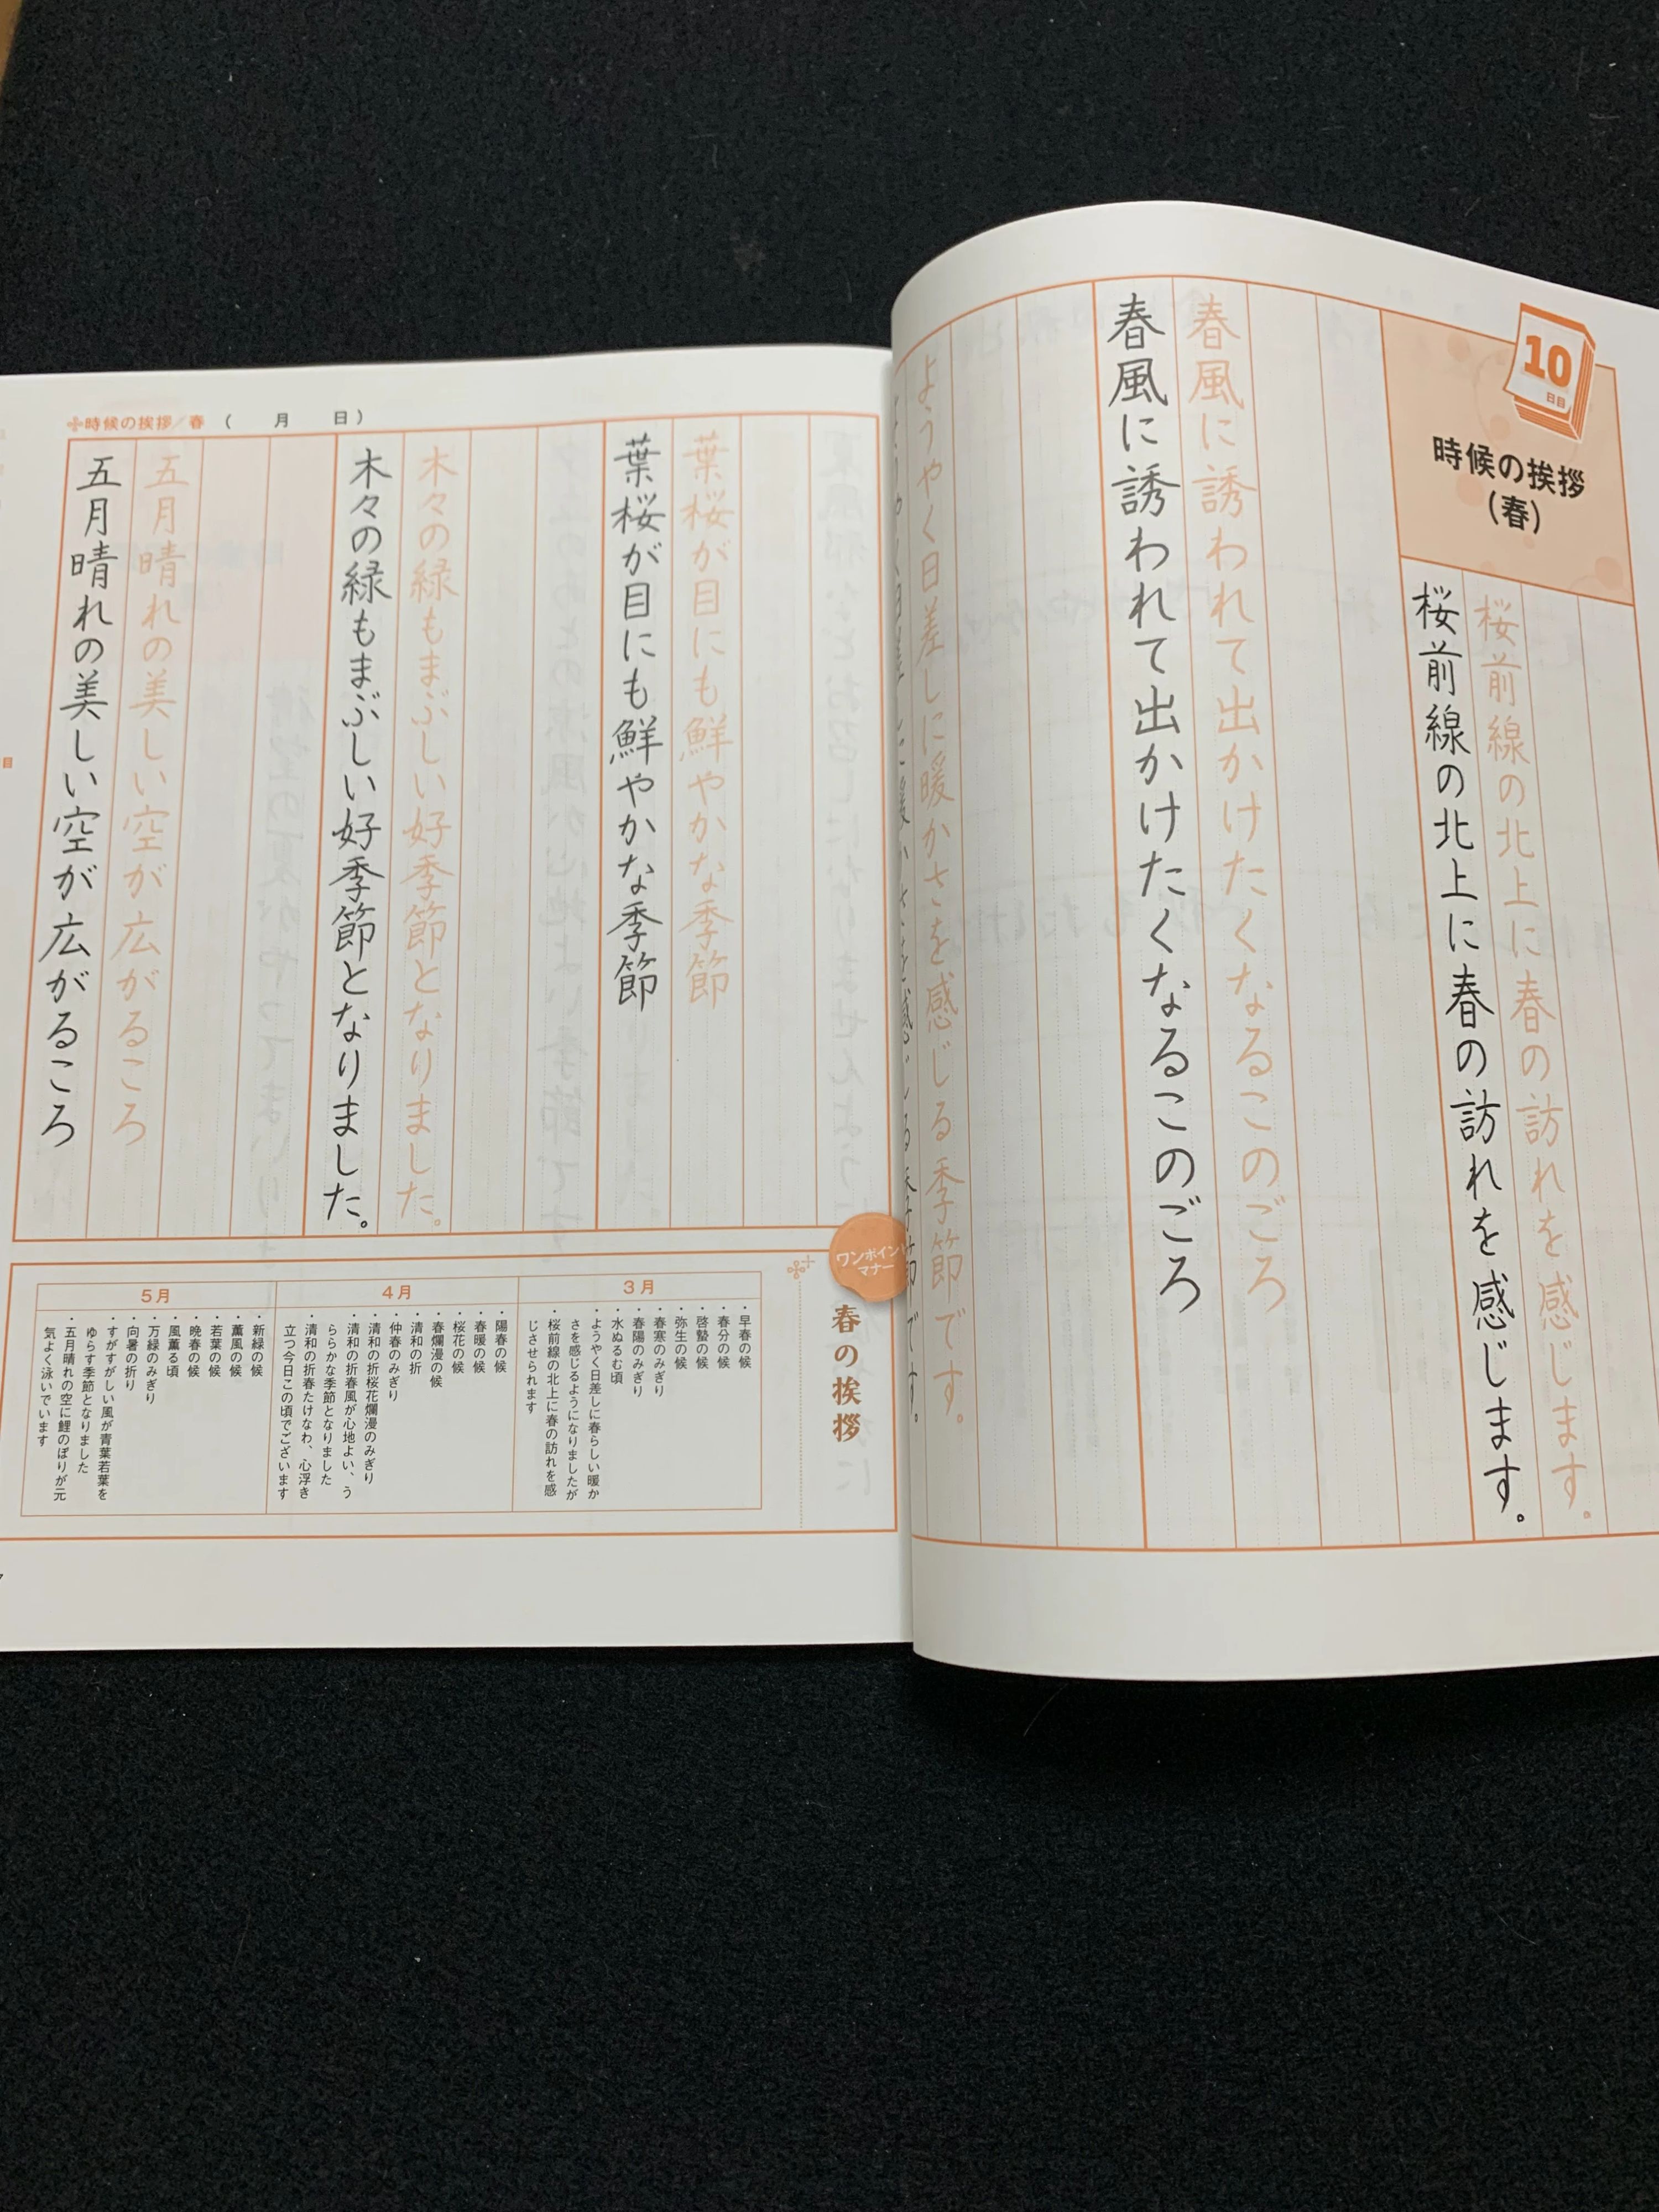 10
日目
時候の挨拶
(春)
桜前線の北上に春の訪れを感じます。
桜前線の北上に春の訪れを感じます。
春風に誘われて出かけたくなるこのごろ
春風に誘われて出かけたくなるこのごろ
ようやく日差しに暖かさを感じる季節です。
ようやく日差しに暖かさを感じる季節です。
✣時候の挨拶／春（　月　日）
葉桜が目にも鮮やかな季節
葉桜が目にも鮮やかな季節
木々の緑もまぶしい好季節となりました。
木々の緑もまぶしい好季節となりました。
五月晴れの美しい空が広がるころ
五月晴れの美しい空が広がるころ
ワンポイント
マナー
春の挨拶
3月
・早春の候
・春分の候
・啓蟄の候
・弥生の候
・春寒のみぎり
・春陽のみぎり
・水ぬるむ頃
・ようやく日差しに春らしい暖か
さを感じるようになりましたが
・桜前線の北上に春の訪れを感
じさせられます
4月
・陽春の候
・春暖の候
・桜花の候
・春爛漫の候
・清和の折
・仲春のみぎり
・清和の折桜花爛漫のみぎり
・清和の折春風が心地よい、う
ららかな季節となりました
・清和の折春たけなわ、心浮き
立つ今日この頃でございます
5月
・新緑の候
・薫風の候
・若葉の候
・晩春の候
・風薫る頃
・万緑のみぎり
・向暑の折り
・すがすがしい風が青葉若葉を
ゆらす季節となりました
・五月晴れの空に鯉のぼりが元
気よく泳いでいます
目